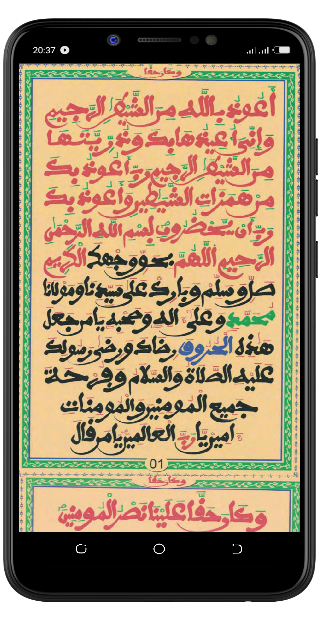 20:37
وكان حقا
أعوذ بالله من الشيطن الرجيم
وإني أعيذها بك وذريتها
من الشيطن الرجيم رب أعوذ بك
من همزات الشيطين وأعوذ بك
رب أن يحضرون بسم الله الرحمن
الرحيم اللهم بحق وجهك الكريم
صل وسلم وبارك على سيدنا ومولانا
محمد وعلى اله وصحبه يا من جعل
هذه الحروف رضاك ورضى رسولك
عليه الصلاة والسلام وفرحة
جميع المومنين والمومنات
امين يا رب العالمين يا من قال
01
وكان حقا
وكان حقا علينا نصر المومنين